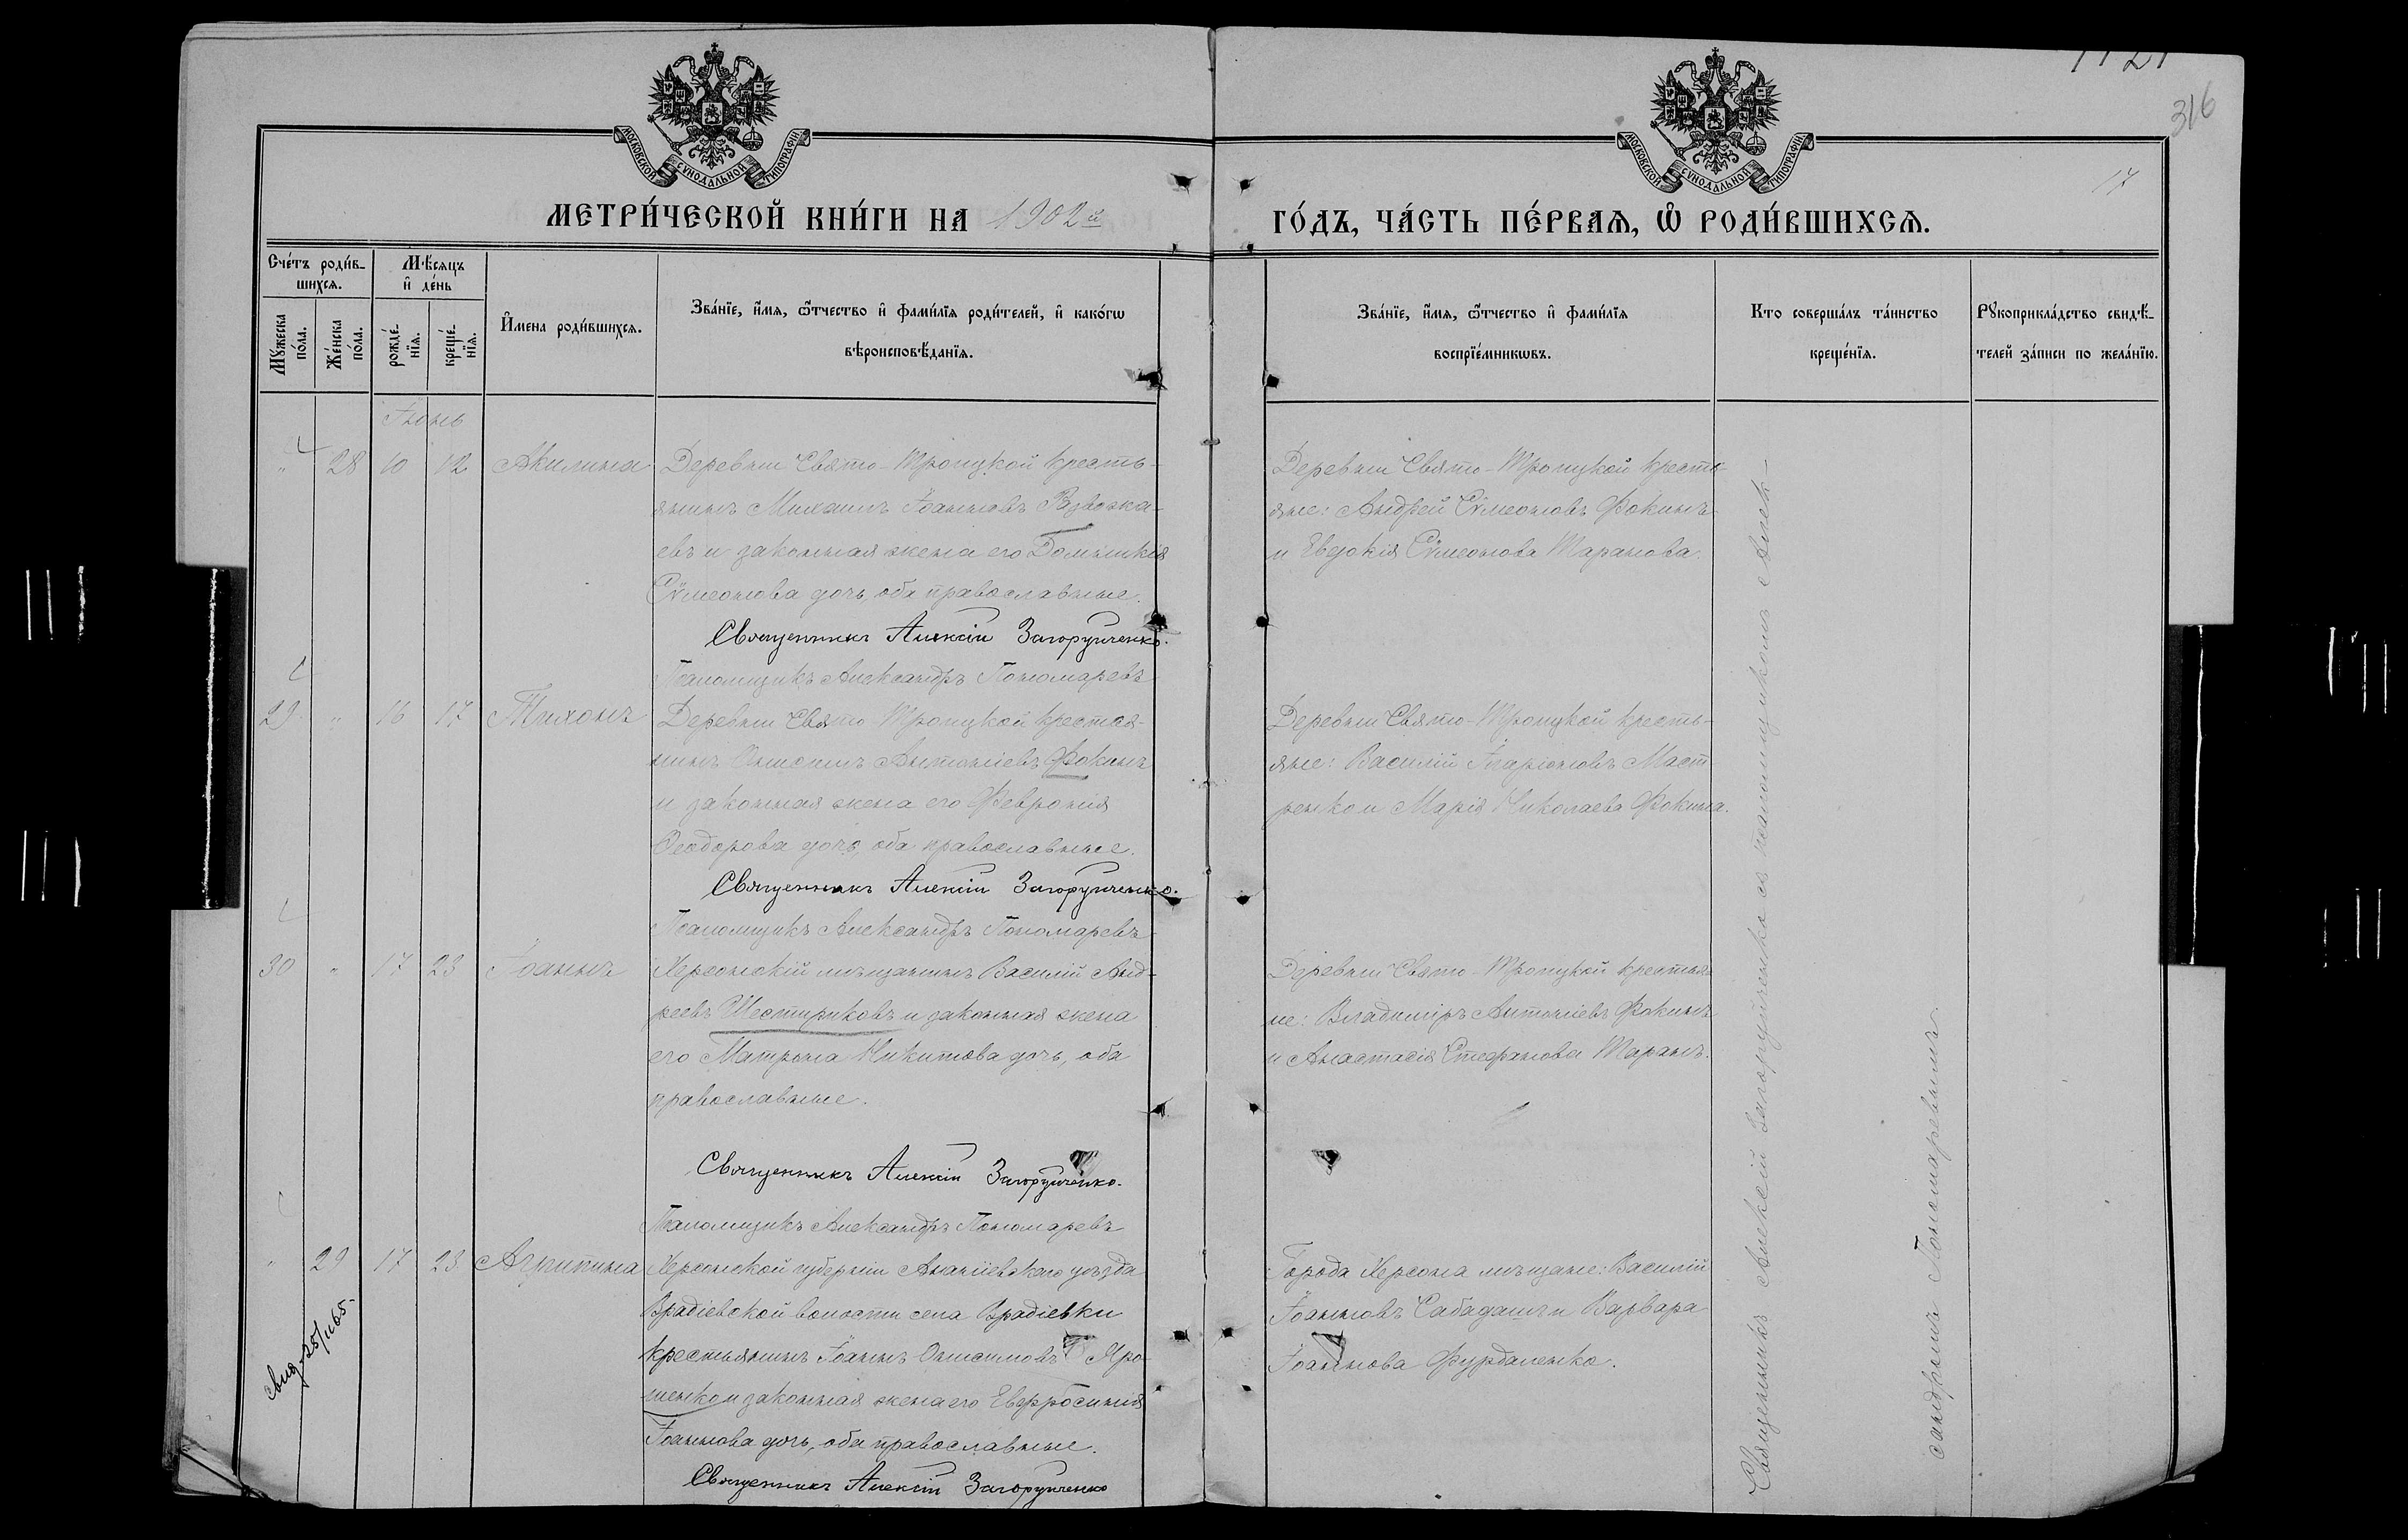 1121
316
17
МОСКОВСКОЙ СѴНОДАЛЬНОЙ ТИПОГРАФІИ
МОСКОВСКОЙ СѴНОДАЛЬНОЙ ТИПОГРАФІИ
МЕТРИ́ЧЕСКОЙ КНИ́ГИ НА 1902й
ГО́ДЪ, ЧА́СТЬ ПЕ́РВАѦ, Ѽ РОДИ́ВШИХСѦ.
Сче́тъ роди́в-
шихсѧ.
Мꙋ́жеска по́ла.
Же́нска по́ла.
Мѣ́сѧцъ и҆ де́нь
рожде́-нїѧ.
креще́-нїѧ.
И҆мена роди́вшихсѧ.
Зва́нїе, и҆́мѧ, ѻ҆́тчество и҆ фами́лїѧ роди́телей, и҆ како́гѡ
вѣроисповѣ́данїѧ.
Зва́нїе, и҆́мѧ, ѻ҆́тчество и҆ фами́лїѧ
воспрїе́мникѡвъ.
Кто соверша́лъ та́инство
креще́нїѧ.
Рꙋкоприкла́дство свидѣ́-
телей за́писи по жела́нїю.
Іюнь
" 28 10 12 Акилина
Деревни Свято-Троицкой кресть-
янинъ Михаилъ Іоанновъ
евъ и законная жена его Домникія
Сѵмеонова дочь, оба православные.
Священникъ Алексій Загоруйченко.
Псаломщикъ Александръ Пономаревъ
Деревни Свято-Троицкой кресть-
яне: Андрей Сѵмеоновъ Фокинъ
и Евдокія Сѵмеонова Таранова.
29 " 16 17 Тихонъ
Деревни Свято-Троицкой крестья-
нинъ Онисимъ Антоніевъ Фокинъ
и законная жена его Февронія
Ѳеодорова дочь, оба православные.
Священникъ Алексій Загоруйченко.
Псаломщикъ Александръ Пономаревъ
Деревни Свято-Троицкой кресть-
яне: Василій Иларіоновъ
ренко и Марія Николаева Фокина.
30 " 17 23 Іоаннъ
Херсонскій мѣщанинъ Василій Анд-
реевъ Шестириковъ и законная жена
его Матрона Никитова дочь, оба
православные.
Священникъ Алексій Загоруйченко.
Псаломщикъ Александръ Пономаревъ
Деревни Свято-Троицкой крестья-
не: Владиміръ Антоніевъ Фокинъ
и Анастасія Стефанова Таранъ.
" 29 17 23 Агрипина
Херсонской губерніи Ананіевскаго уѣзда
Врадіевской волости села Врадіевки
крестьянинъ Іоаннъ Онисимовъ Яро-
шенко и законная жена его Евфросинія
Іоаннова дочь, оба православные.
Священникъ Алексій Загоруйченко
Города Херсона мѣщане: Василій
Іоанновъ Сабадашъ и Варвара
Іоаннова Фурдаленко.
Священникъ Алексій Загоруйченко съ псаломщикомъ Алек-
сандромъ Пономаревымъ.